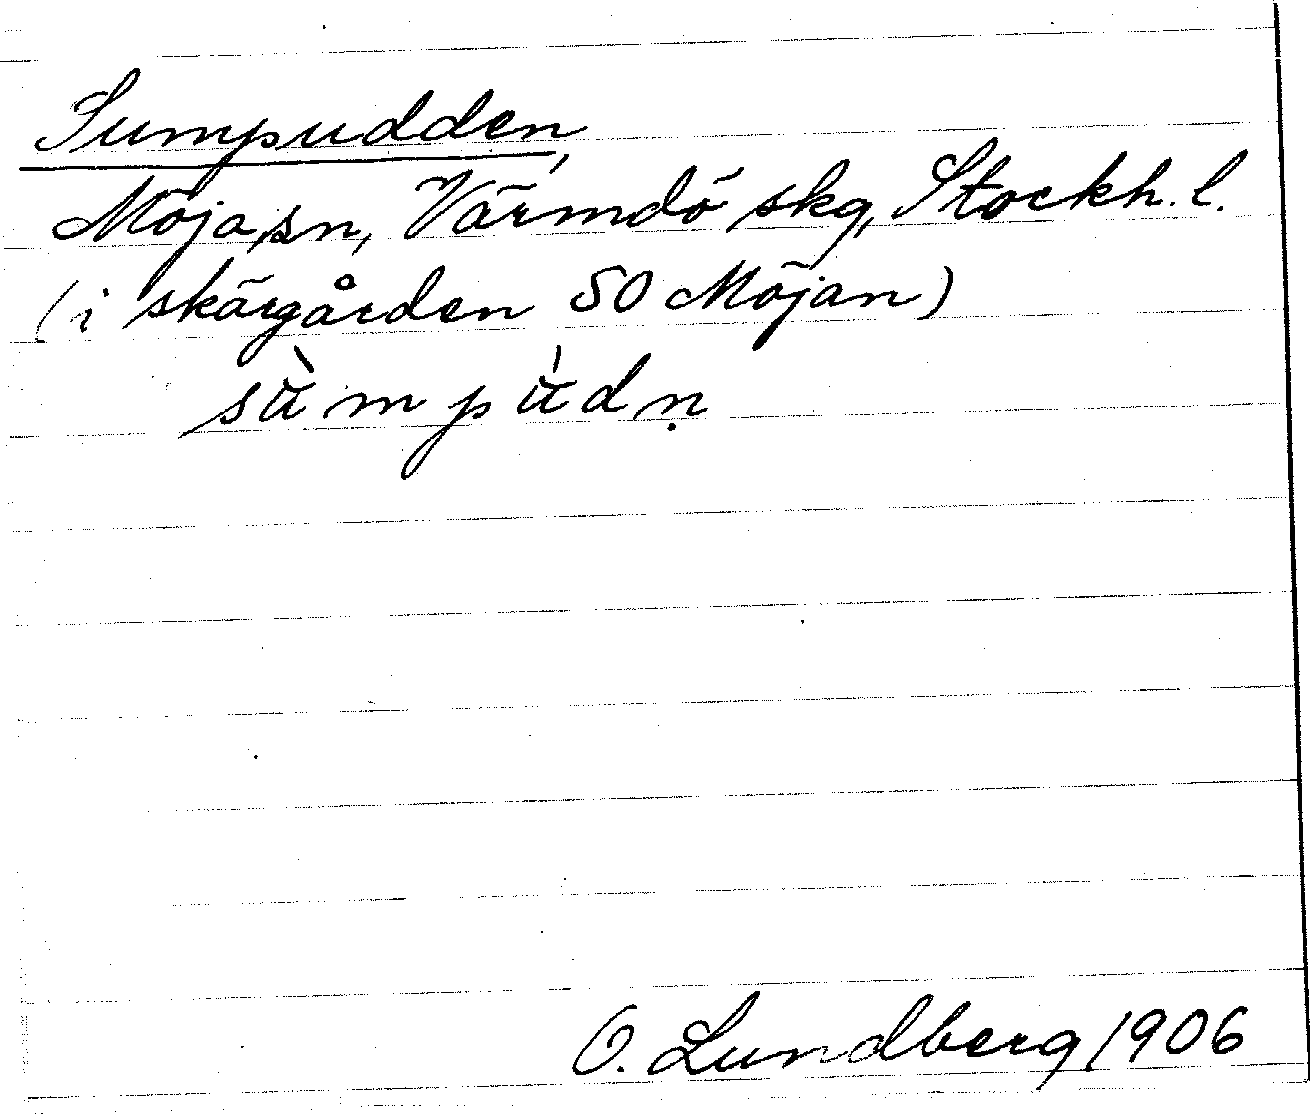 Sumpudden,
Möja sn, Värmdö skg, Stockh. l.
(i skärgården SO Möjan)
sùmpúdṇ
O. Lundberg 1906